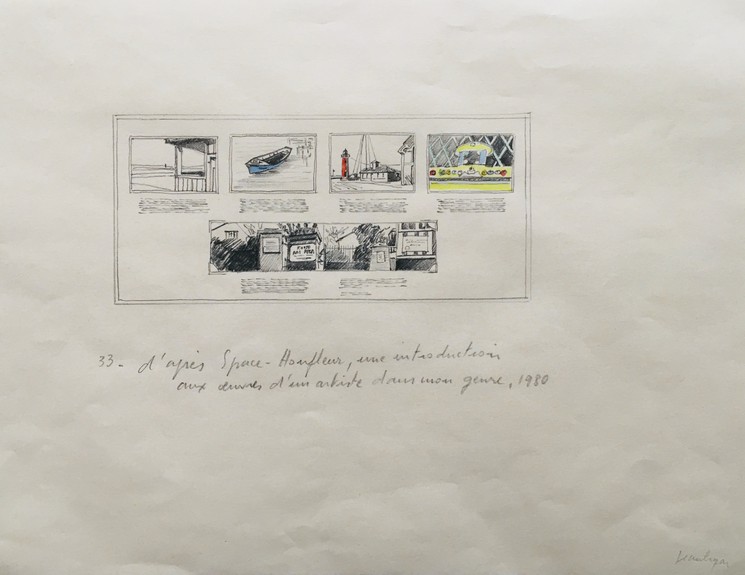 33- d'après Space-Honfleur, une introduction
aux œuvres d'un artiste dans mon genre, 1980